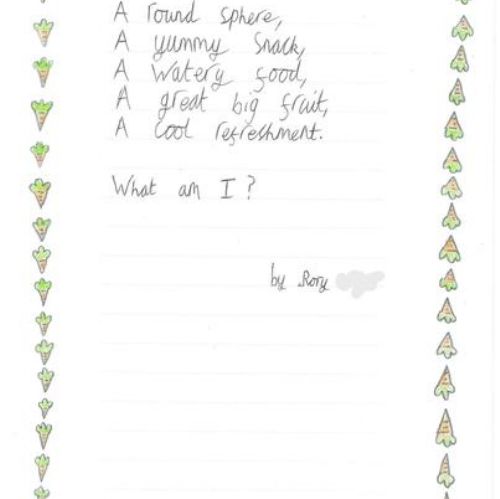 A round sphere,
A yummy snack,
A watery food,
A great big fruit,
A cool refreshment.
What am I?
by Rory